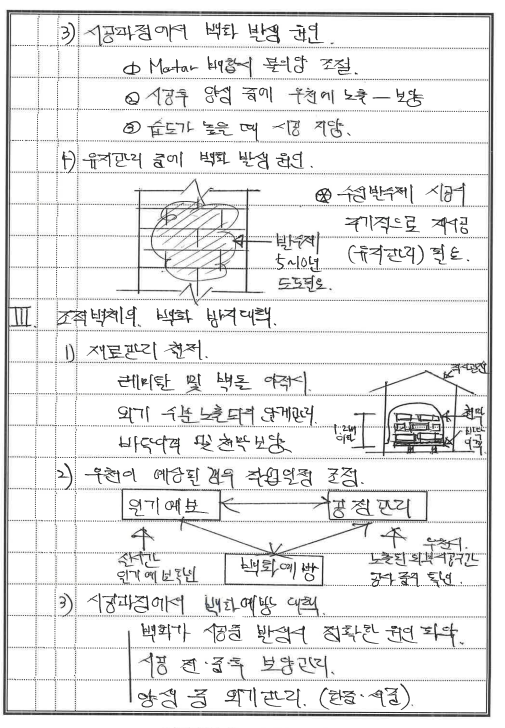 3) 시공과정에서 백화 발생 원인.
① Motar 배합시 물의양 조절.
② 시공후 양생 중에 우천에 노출 - 보양
③ 습도가 높은 때 시공 지양.
4) 유지관리 중에 백화 발생 원인.
※ 수성발수제 시공시
주기적으로 재시공
(유지관리) 필요.
발수제
5~10년
도포필요.
III. 조적벽체의 백화 방지대책.
1) 재료관리 철저.
레미탈 및 벽돌 야적시.
외기 수분 노출되지 않게관리.
바닥이격 및 천막보양.
천막
1.2m
이하
바닥
이격
2) 우천이 예상된 경우 작업일정 조정.
일기예보
공정관리
백화예방
실시간
일기예보확인
우천시.
노출된 외부시공구간
공사 중지 확인.
3) 시공과정에서 백화예방 대책.
백화가 시공중 발생시 정확한 원인 파악.
시공 전·중·후 보양관리.
양생 중 외기관리. (한중·서중).